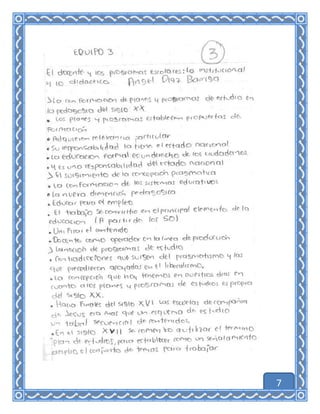 EQUIPO 3
3
El docente y los programas escolares: lo institucional
y lo didactico Angel Diaz Barriga
La conformacion de planes y programas de estudio en
la pedagogia del siglo XX
Los planes y programas establecen propuestas de
formación
Adquieren relevancia particular
Su responsabilidad la tiene el estado nacional
La educación formal es un derecho de los ciudadanos
Y es una responsabilidad del estado nacional
El surgimiento de la concepción pragmatica
La conformacion de los sistemas educativos
la nueva dimension pedagogica
Educar para el empleo
El trabajo se convirtio en el principal elemento de la
educación (A partir de los 50)
Unificar el contenido
Docente como operador en la linea de producción
de programas de estudio
Contradicciones que surgen del pragmatismo y las
que prevalecen apoyadas en el liberalismo,
La concepción que hoy tenemos en nuestros dias en
cuanto a los planes y programas de estudios es propia
del siglo XX.
Hacia finales del siglo XVI las escuelas de compañia
de Jesus era mas que un esquema de estudio
un tabul secuencial de contenidos.
En el siglo XVII se comenzo a utilizar el termino
"plan de estudios", para establecer como un señalamiento
amplio el conjunto de temas para trabajar
7